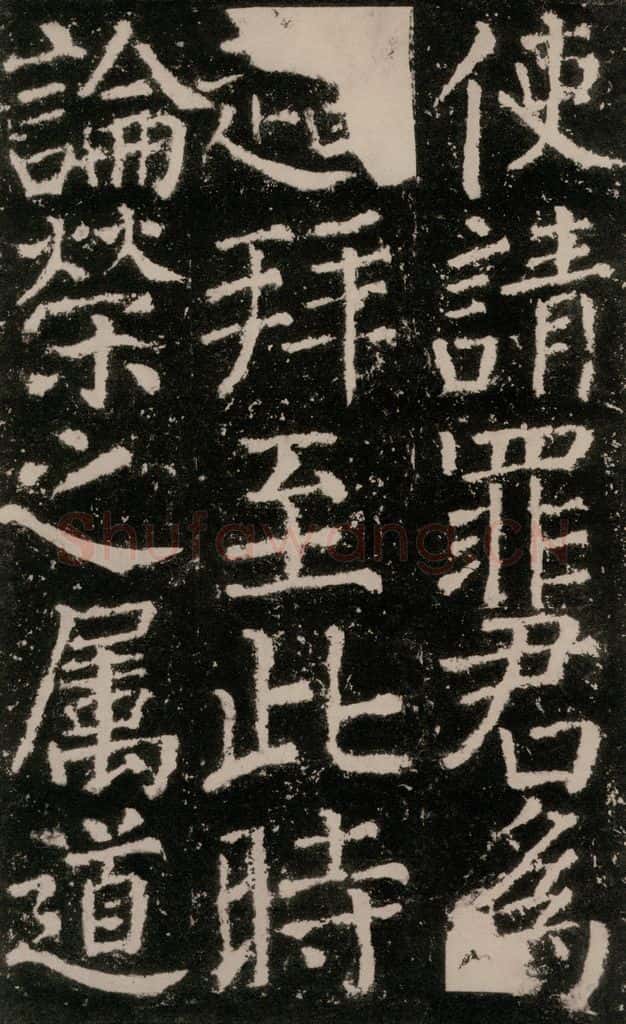 使請罪君爲
拜至此時
論榮之属道
Shufawang.CN